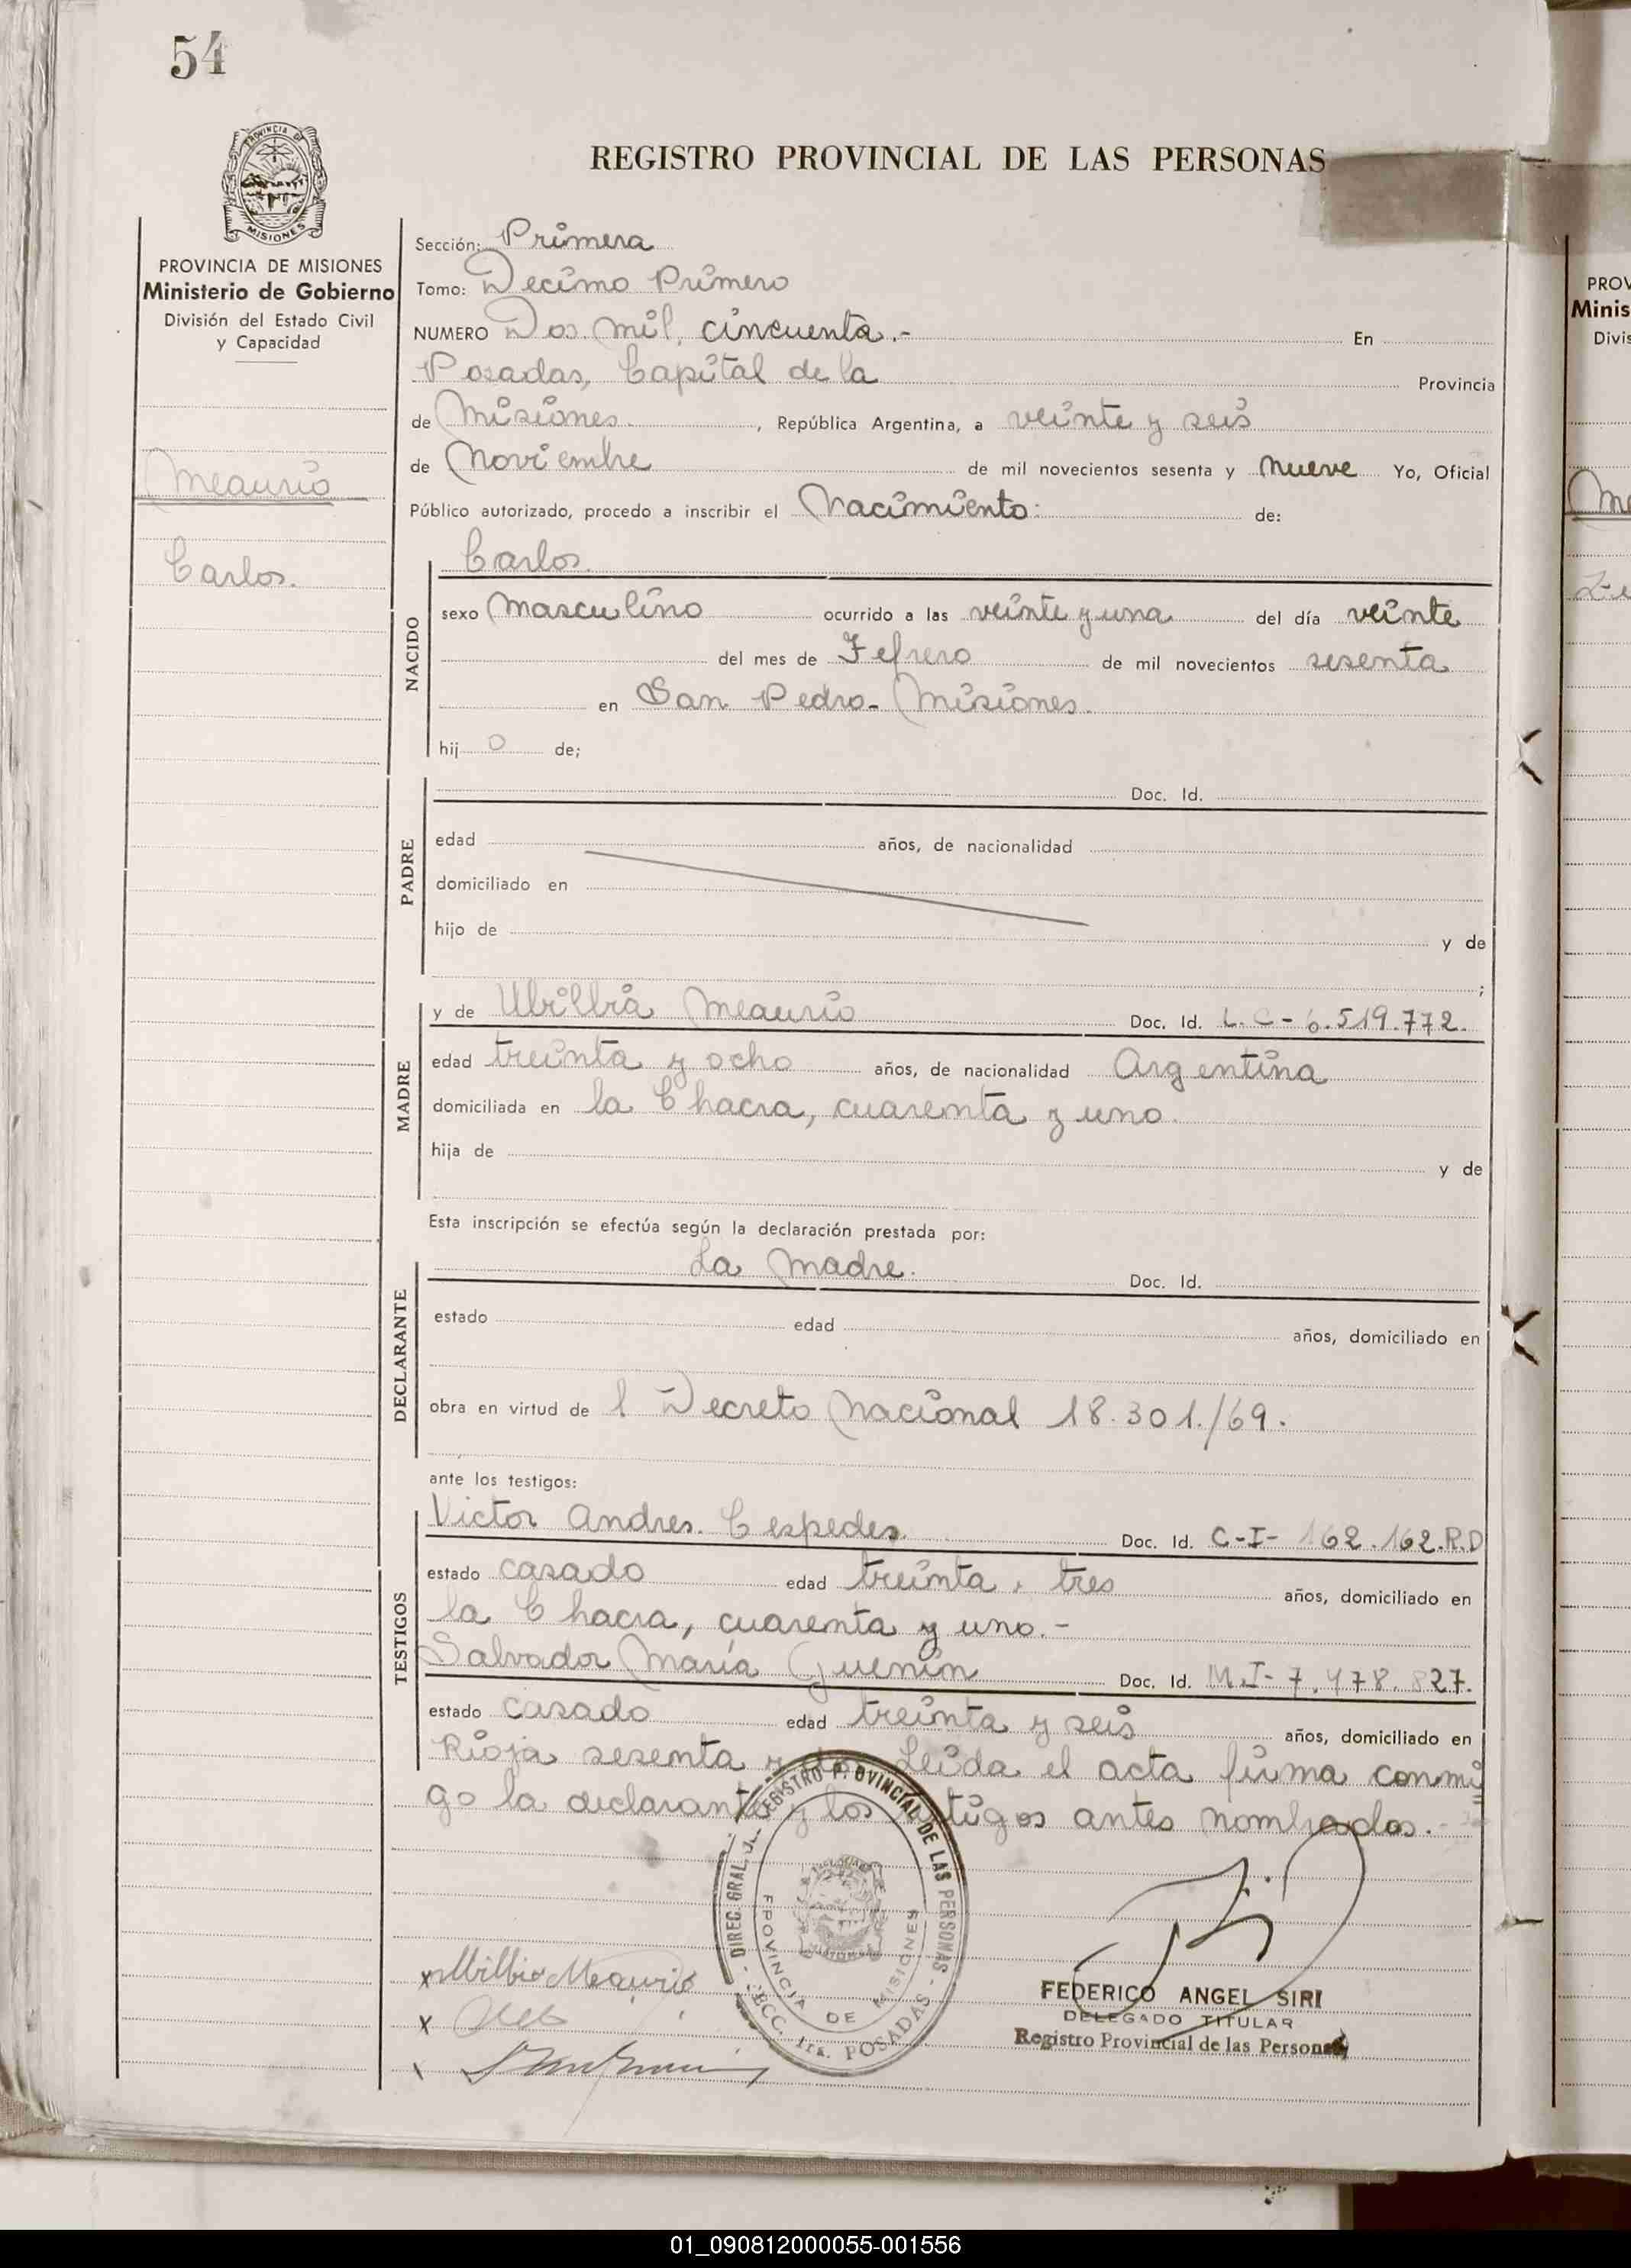 54
PROVINCIA DE MISIONES
REGISTRO PROVINCIAL DE LAS PERSONAS
PROVINCIA DE MISIONES
Ministerio de Gobierno
División del Estado Civil
y Capacidad
Meaurio
Carlos.
Sección: Primera
Tomo: Decimo Primero
NUMERO Dos mil, cincuenta.- En
Posadas, Capital de la Provincia
de Misiones. , República Argentina, a veinte y seis
de Noviembre de mil novecientos sesenta y nueve Yo, Oficial
Público autorizado, procedo a inscribir el Nacimiento: de:
NACIDO
Carlos.
sexo Masculino ocurrido a las veinte y una del día veinte
del mes de Febrero de mil novecientos sesenta
en San Pedro- Misiones.
hij o de;
PADRE
Doc. Id.
edad años, de nacionalidad
domiciliado en
hijo de y de
;
MADRE
y de Meaurio Doc. Id. L.C-6.519.772.
edad treinta y ocho años, de nacionalidad Argentina
domiciliada en la Chacra, cuarenta y uno.
hija de y de
Esta inscripción se efectúa según la declaración prestada por:
DECLARANTE
La Madre. Doc. Id.
estado edad años, domiciliado en
obra en virtud de l Decreto Nacional 18.301./69.
ante los testigos:
TESTIGOS
Victor Andres Cespedes Doc. Id. C-I- 162.162.R.D
estado casado edad treinta, tres años, domiciliado en
la Chacra, cuarenta y uno.-
Salvador María Guenin Doc. Id. M.I-7.478.827.
estado casado edad treinta y seis años, domiciliado en
Rioja sesenta y dos Leida el acta firma conmi
go la declarante y los testigos antes nombrados.-
DIREC. GRAL. DEL REGISTRO PROVINCIAL DE LAS PERSONAS - SECC. 1ra. POSADAS -
PROVINCIA DE MISIONES
x Meaurio
x
x
FEDERICO ANGEL SIRI
DELEGADO TITULAR
Registro Provincial de las Personas
PROV
Minis
Divis
Me
01_090812000055-001556